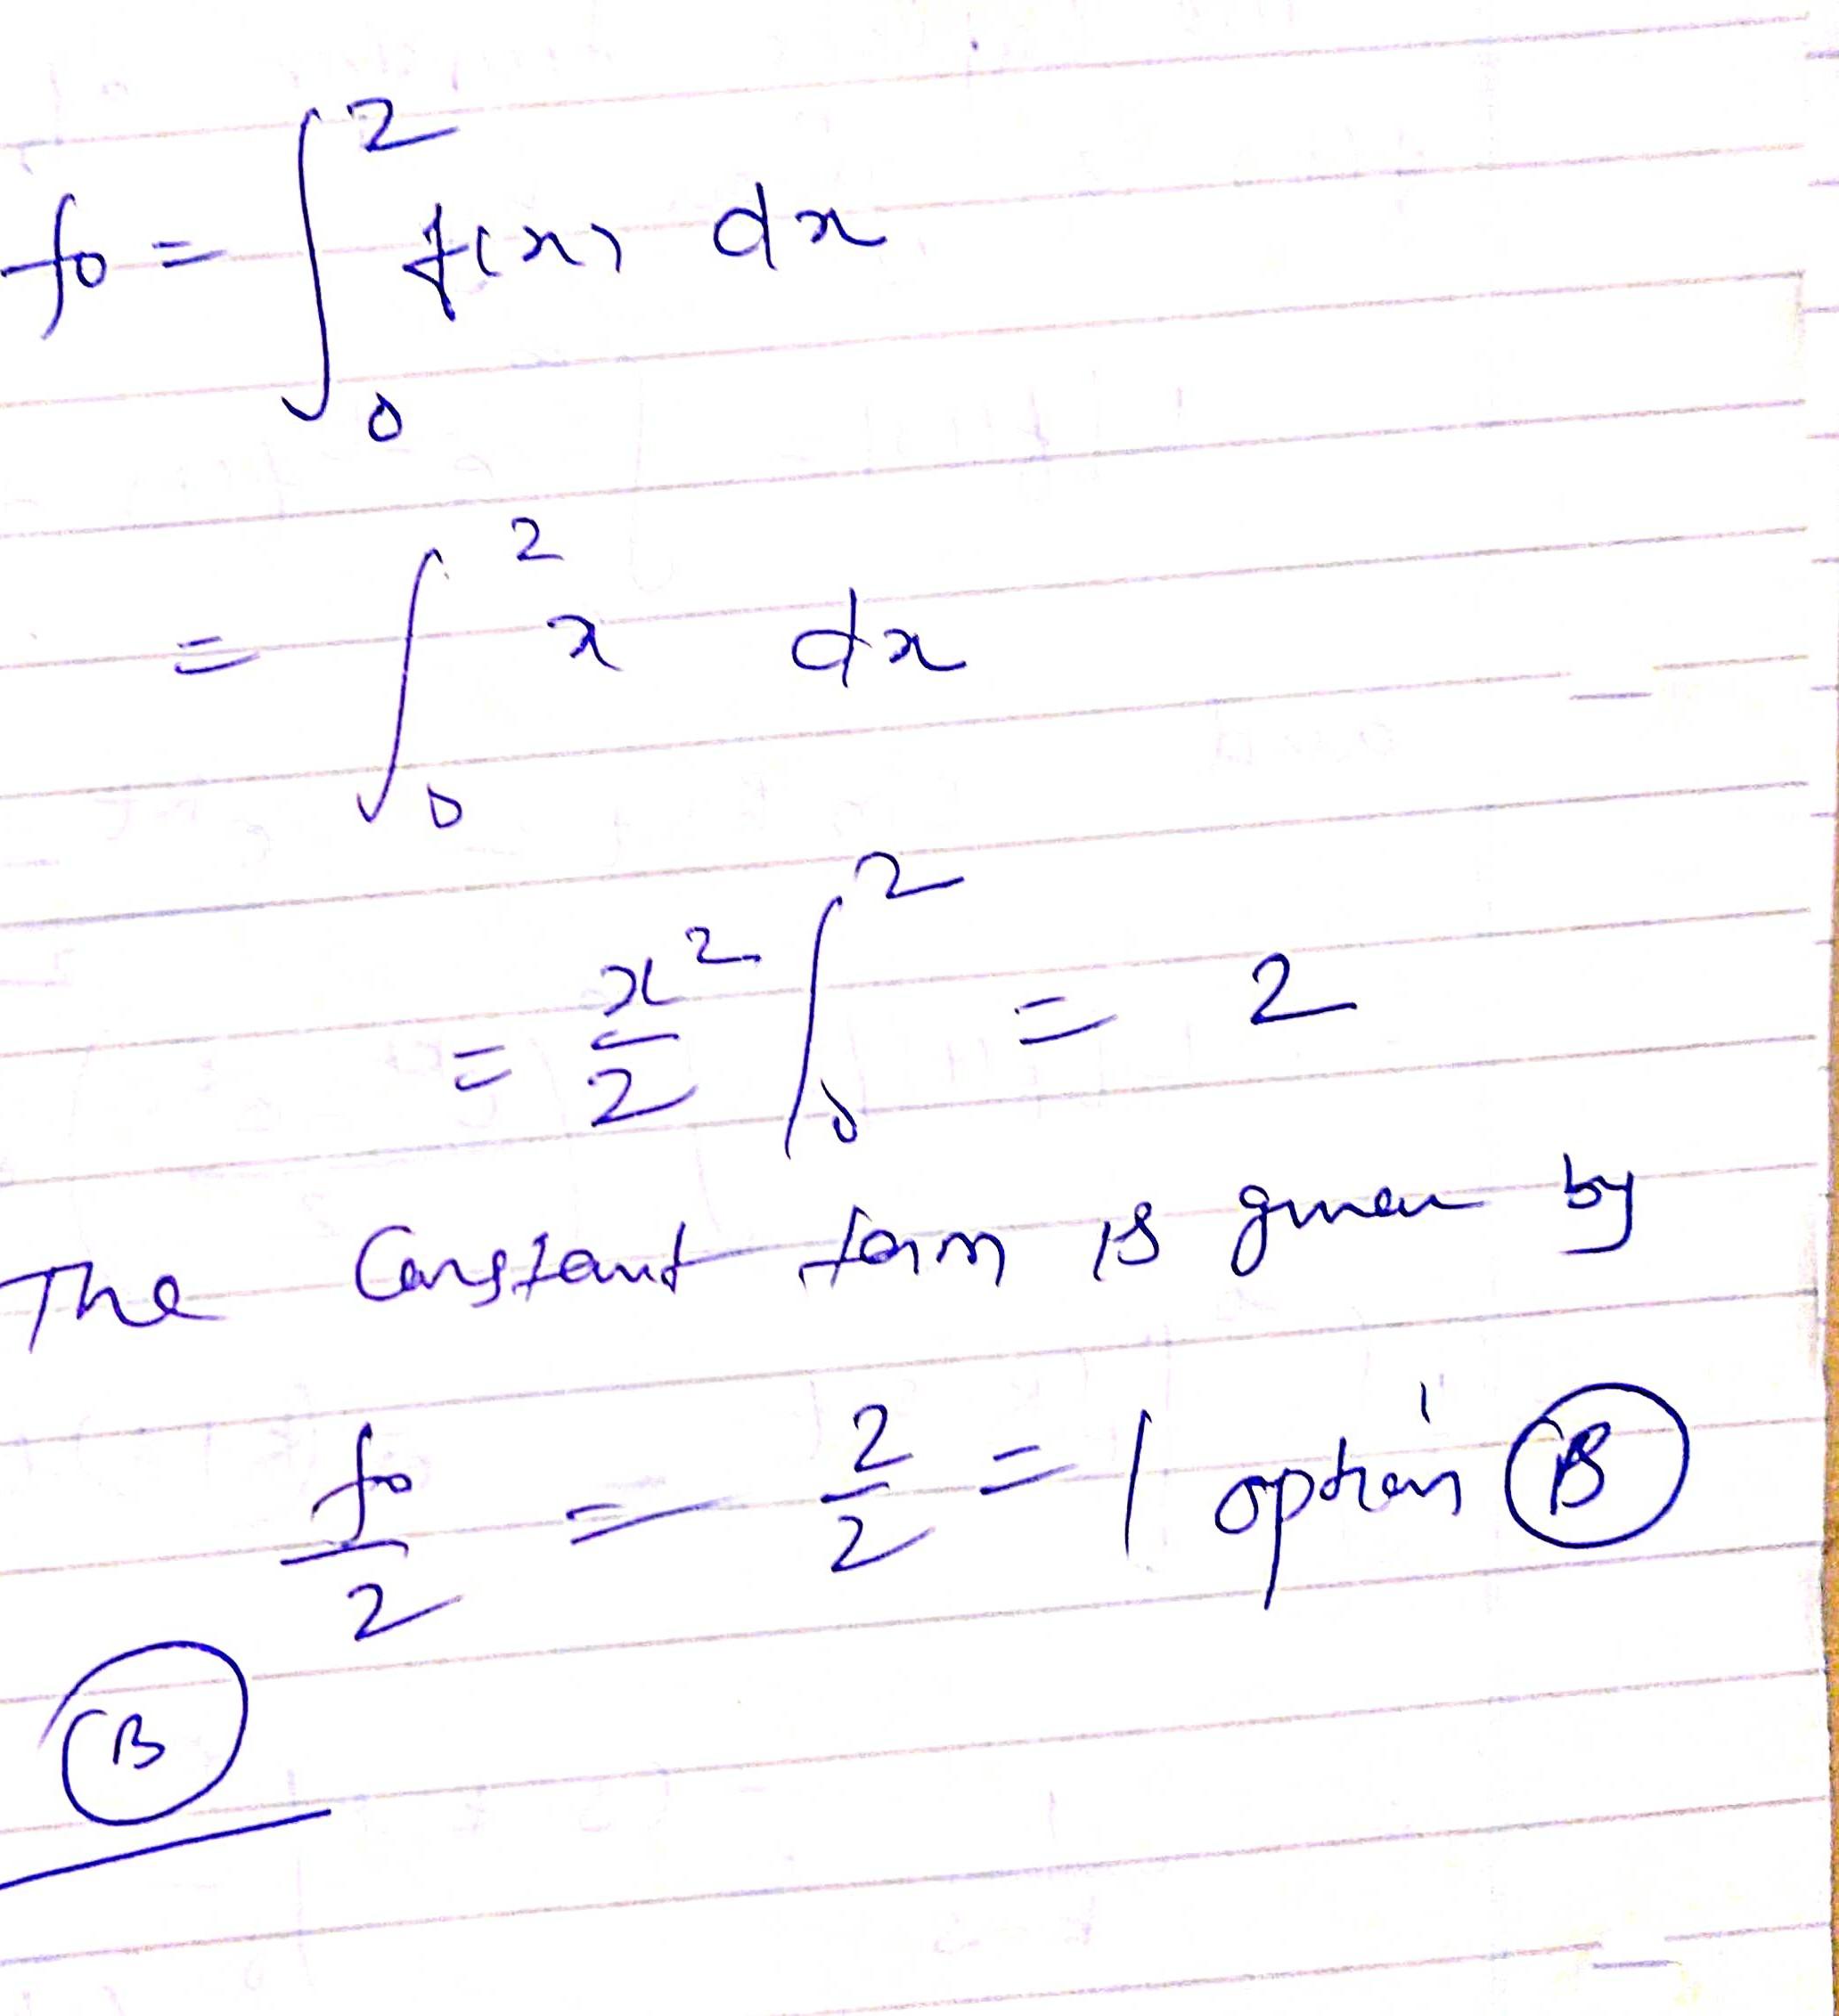 f0 = ∫₀² f(x) dx
= ∫₀² x dx
= x²/2 |₀² = 2
The Constant term is given by
f0/2 = 2/2 = 1 option B
B